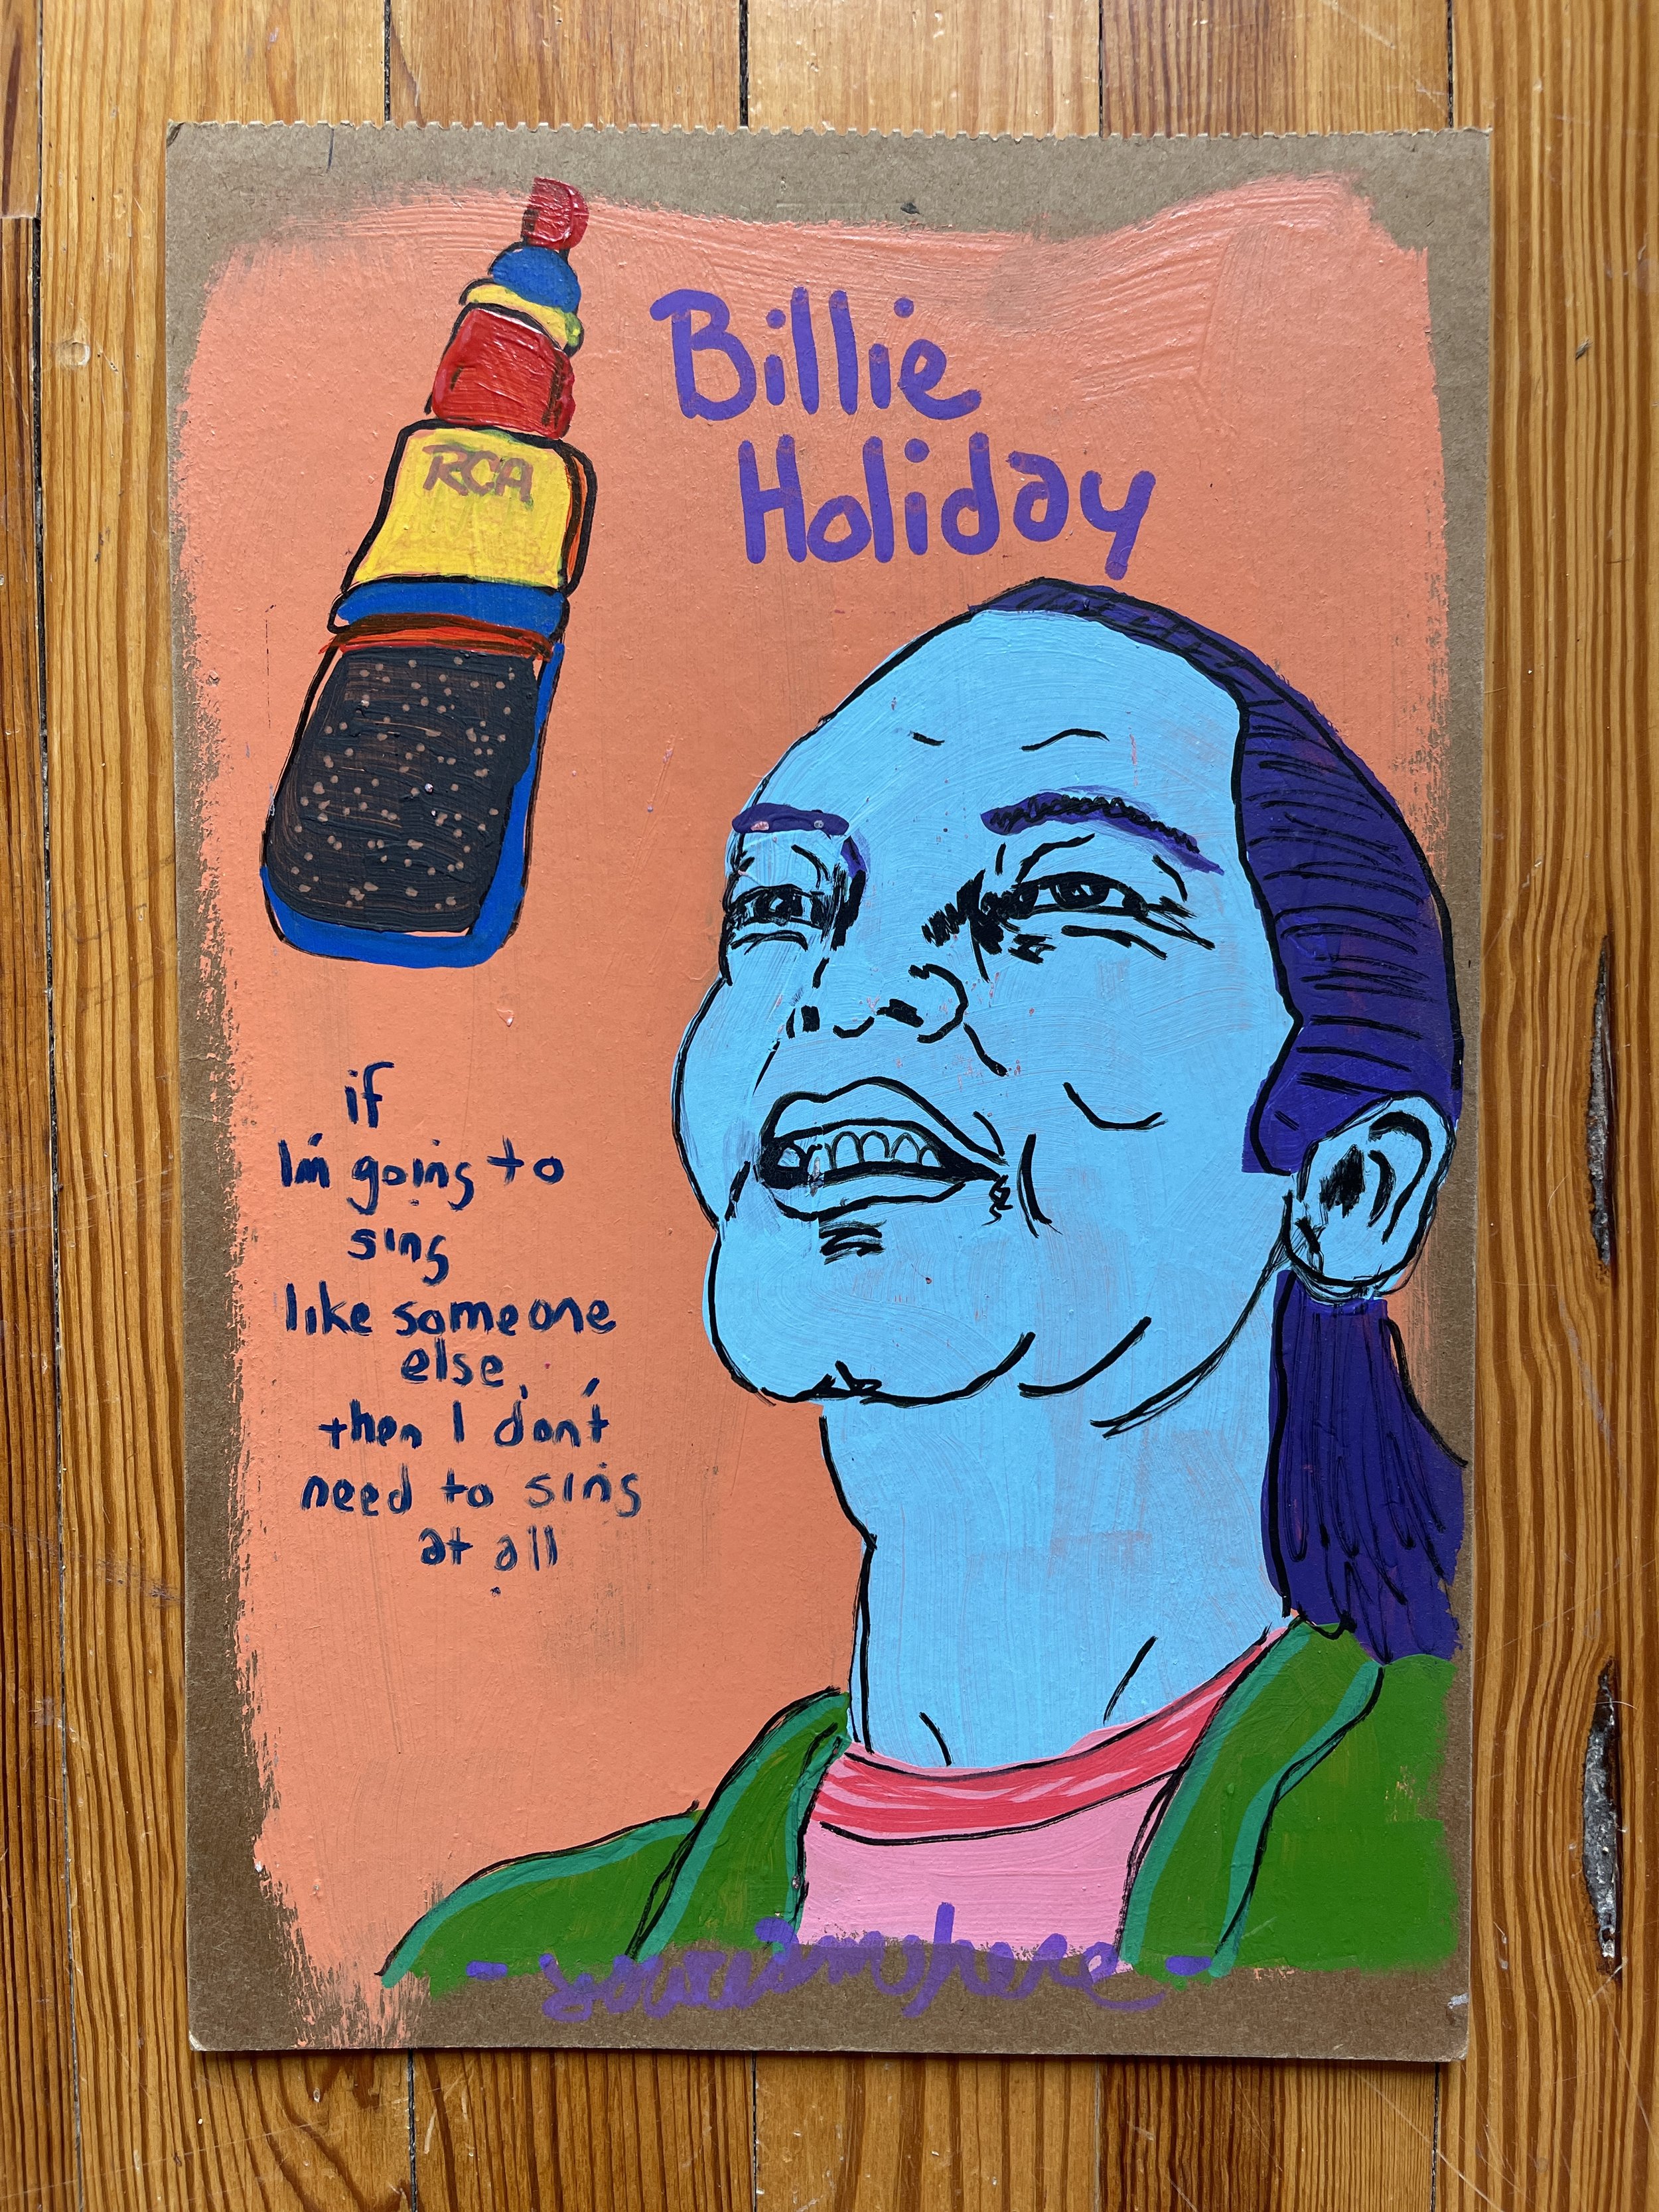 RCA
Billie
Holiday
if
I'm going to
sing
like someone
else,
then I don't
need to sing
at all